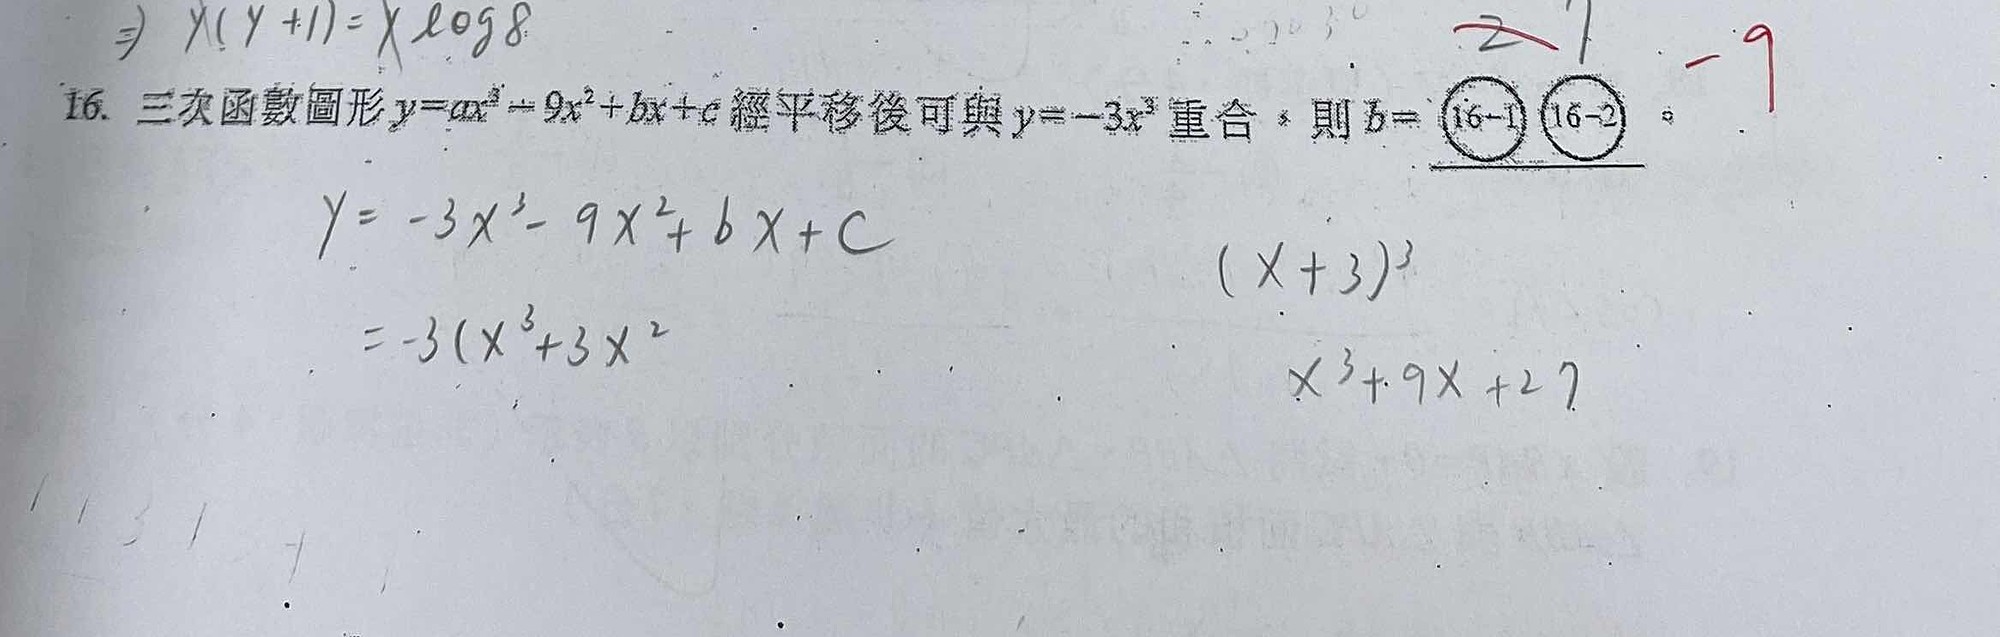 ⇒) X(Y+1)=X log8
27 -9
16. 三次函數圖形 y=ax³-9x²+bx+c 經平移後可與 y=-3x³ 重合,則 b= (16-1) (16-2) 。
y = -3x³ - 9x² + bx + c
(x+3)³
= -3(x³+3x²
x³+9x+27
1 1 3 1